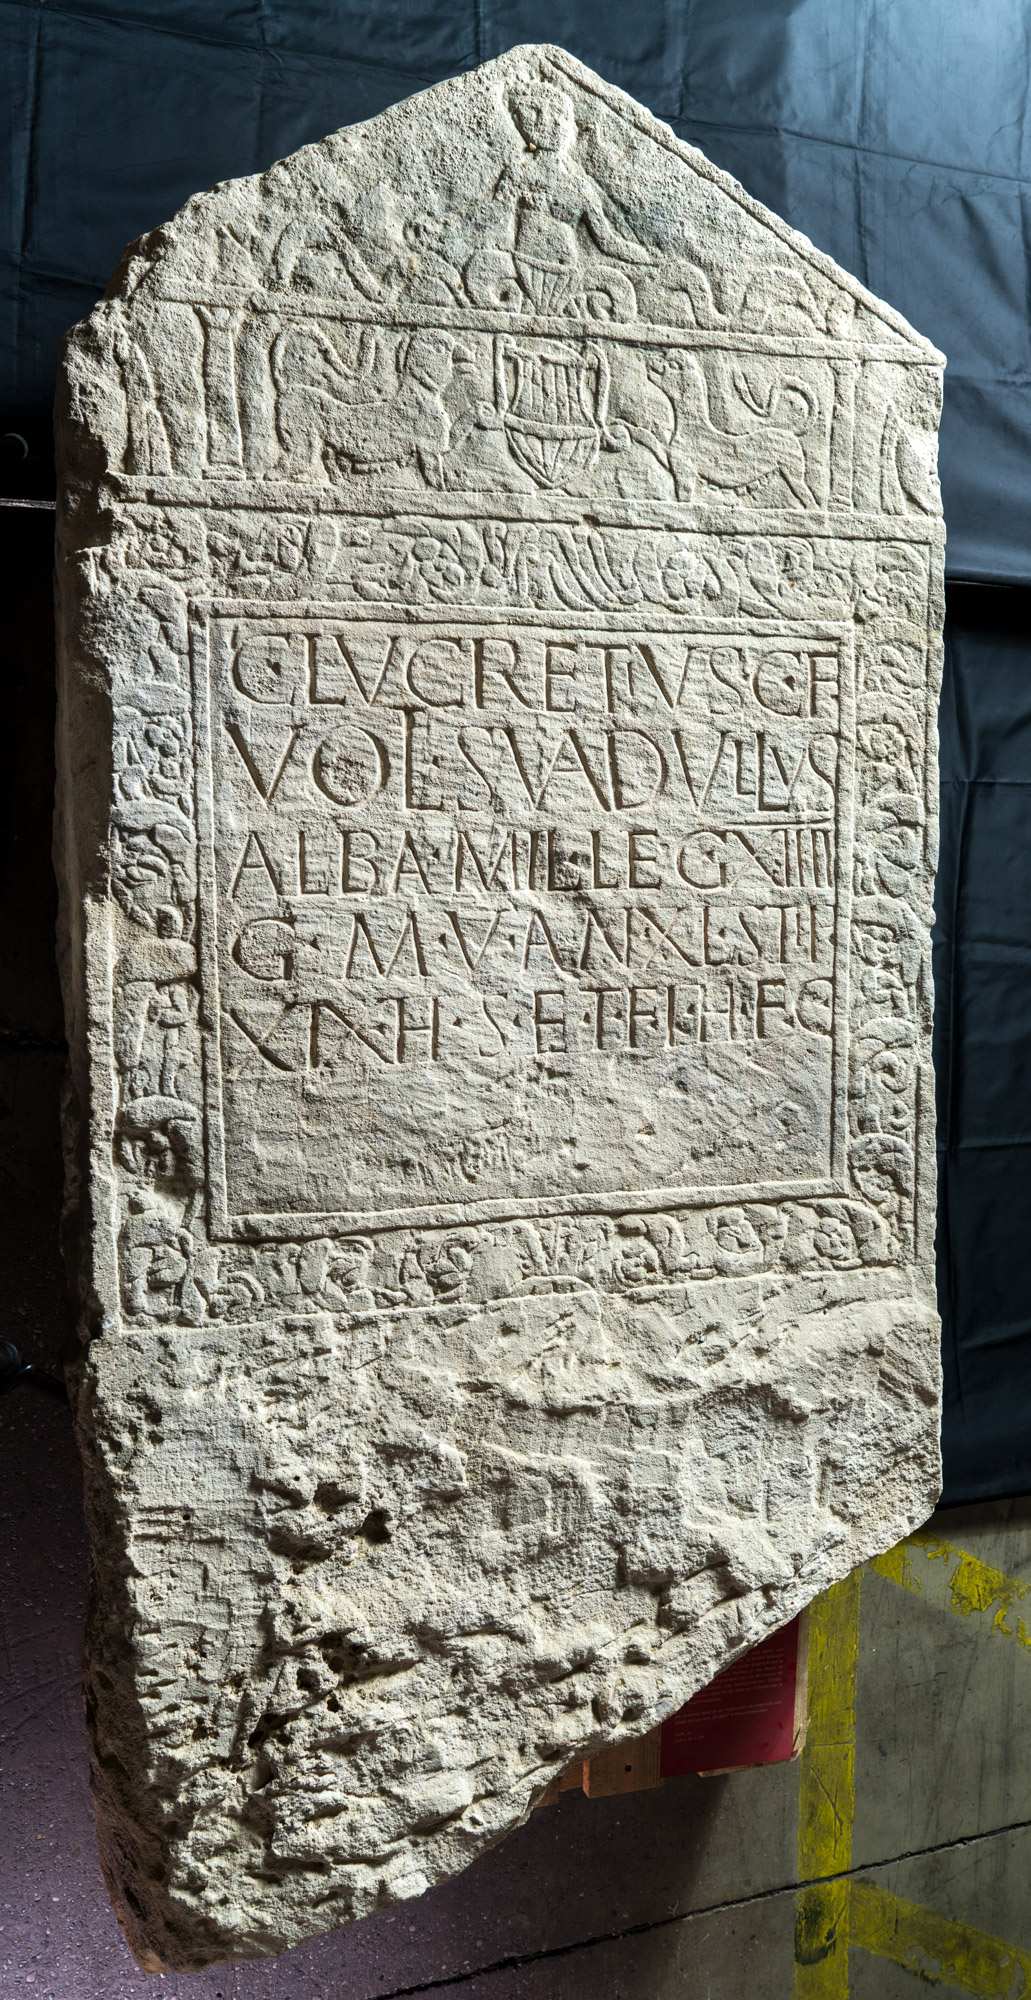 C·LVCRETIVS·C·F
VOL·SVADVLLVS
ALBA·MIL·LEG·XIIII
G·M·V·AN·XL·STIP·
H·S·E·T·F·I·H·F·C